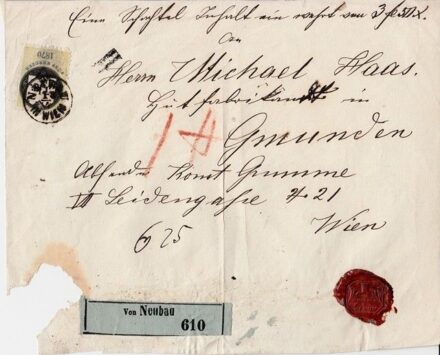 Eine Schachtel Inhalt ein wehrt von 3 fl
An
Herrn Michael Haas.
Hutfabrikant in
Gmunden
14
Absender Konst Grumme
VII Seidengasse # 21
Wien
6 25
1870
WIEN
Von Neubau
610